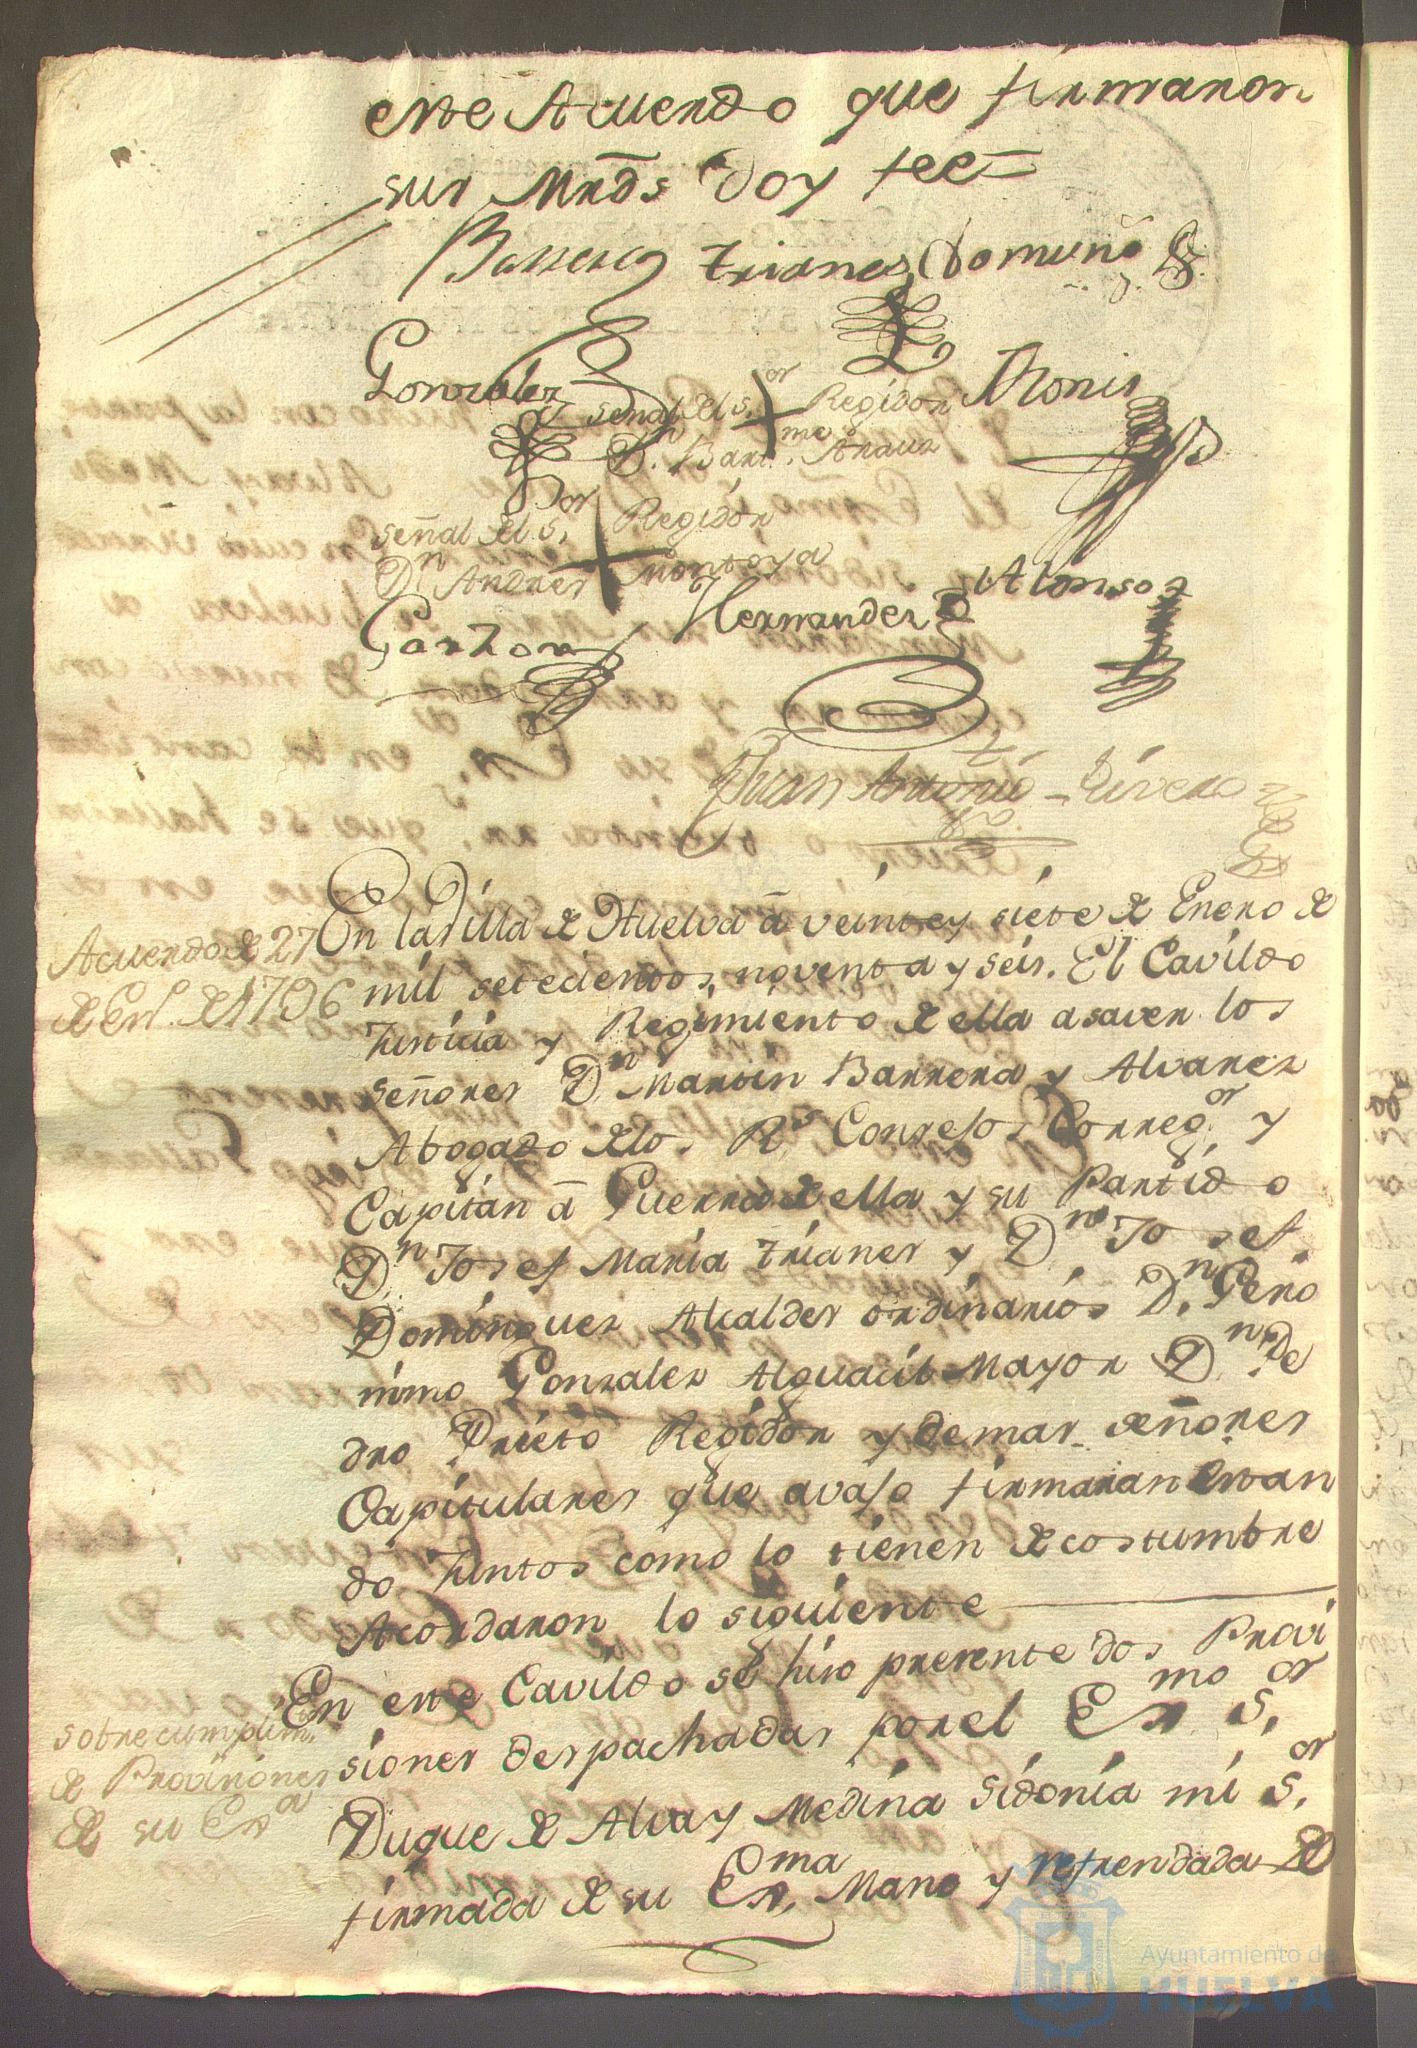 este Acuerdo que firmaron
sus Mrds doy fee=
Barrera Trianes Doming
Gonzalez
señal del s.or Regidor
D.n Bart.me Arauz
señal del s.or Regidor
D.n Andres Montoya
Garzon Hernandez Alonso
Juan Antonio Rivero
Acuerdo de 27
de En.o de 1796
En la Villa de Huelva á veinte y siete de Enero de
mil setecientos, noventa y seis. El Cavildo
Justicia y Regimiento de ella asaver los
señores D.n Martin Barrera y Alvarez
Abogado delos R.s Consejos Correg.or y
Capitan á Guerra de ella y su Partido
D.n Josef Maria Trianes y D.n Josef
Dominguez Alcaldes ordinarios D.n Gero
nimo Gonzalez Alguacil Mayor D.n Pe
dro Prieto Regidor y demas señores
Capitulares que avajo firmaran estan
do Juntos como lo tienen de costumbre
Acordaron lo siguiente
Sobre cumplim.to
de Provisiones
de su Ex.a
En este Cavildo se hizo presente dos Provi
siones despachadas por el Ex.mo S.or
Duque de Alva y Medina Sidonia mi S.or
firmada de su Ex.ma Mano y refrendada de
Ayuntamiento de
HUELVA